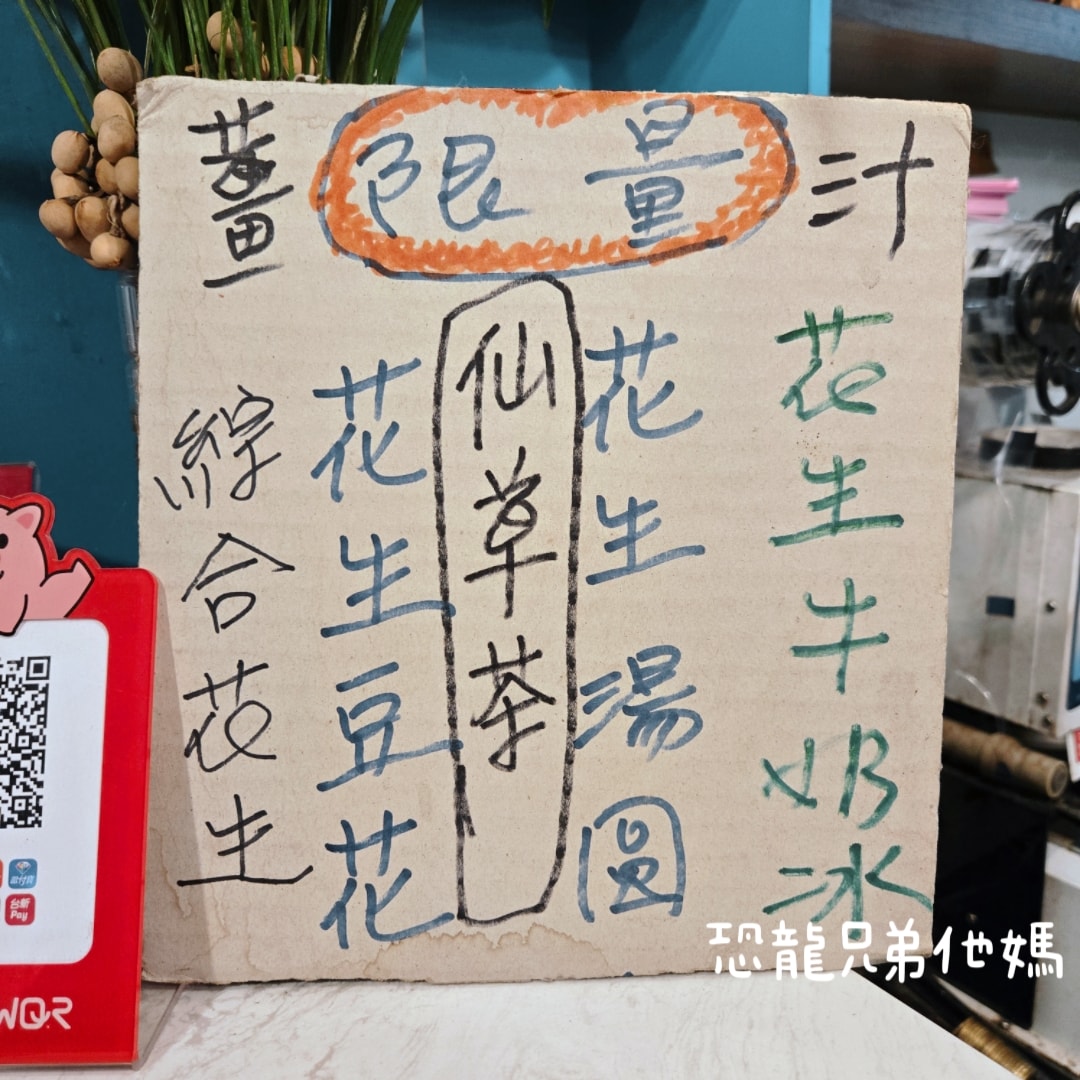 薑 限量 汁
花生牛奶冰
花生湯圓
仙草茶
花生豆花
綜合花生
台新Pay
WQR
恐龍兄弟他媽